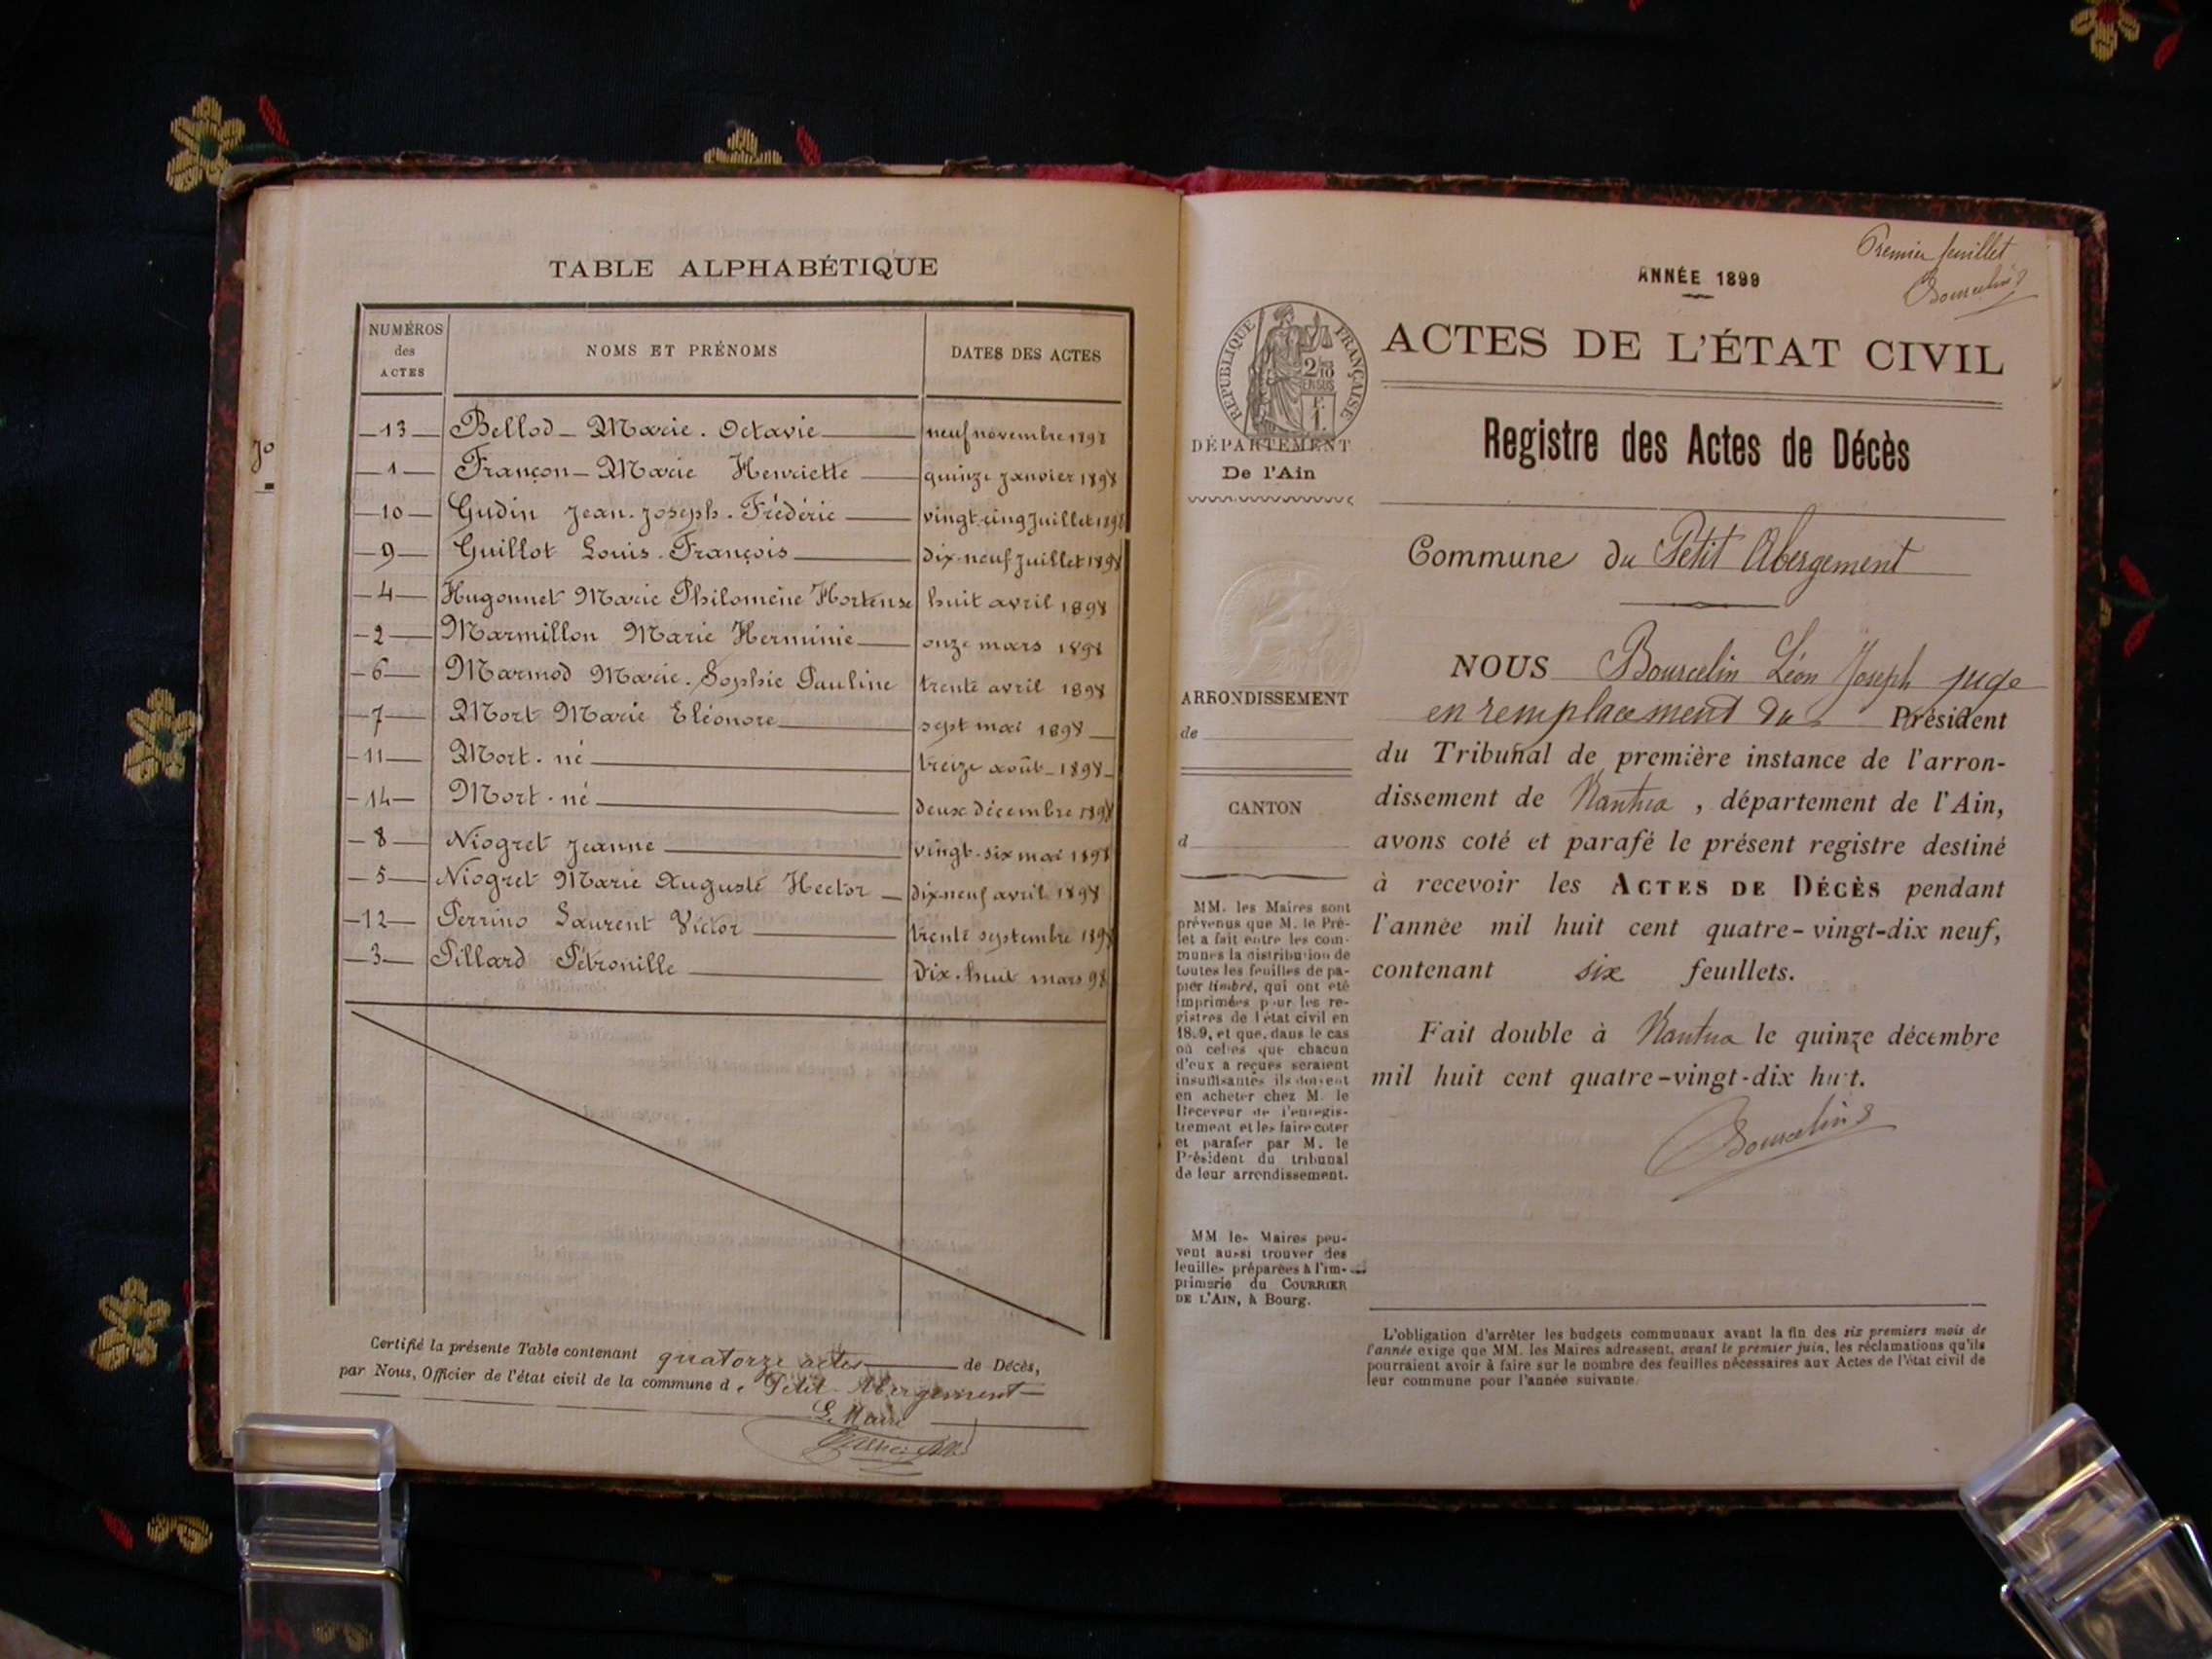 TABLE ALPHABÉTIQUE
NUMÉROS des ACTES NOMS ET PRÉNOMS DATES DES ACTES
13 Bellod Marie Octavie neuf novembre 1898
1 Françon Marie Henriette quinze janvier 1898
10 Gudin Jean Joseph Frédéric vingt cinq Juillet 1898
9 Guillot Louis François dix-neuf juillet 1898
4 Hugonnet Marie Philomène Hortense huit avril 1898
2 Marmillon Marie Herminie onze mars 1898
6 Marmod Marie Sophie Pauline trente avril 1898
7 Mort Marie Eléonore sept mai 1898
11 Mort-né treize août 1898
14 Mort-né deux décembre 1898
8 Niogret Jeanne vingt-six mai 1898
5 Niogret Marie Auguste Hector dix-neuf avril 1898
12 Perrino Laurent Victor trente septembre 1898
3 Pillard Pétronille Dix-huit mars 98
Certifié la présente Table contenant quatorze actes de Décès,
par Nous, Officier de l'état civil de la commune de Petit-Abergement
Le Maire
Premier feuillet
Bourcelin
ANNÉE 1899
RÉPUBLIQUE FRANÇAISE
ACTES DE L'ÉTAT CIVIL
DÉPARTEMENT
De l'Ain
Registre des Actes de Décès
Commune du Petit Abergement
ARRONDISSEMENT
de
CANTON
d
MM. les Maires sont
prévenus que M. le Pré-
fet a fait entre les com-
munes la distribution de
toutes les feuilles de pa-
pier timbré, qui ont été
imprimées pour les re-
gistres de l'état civil en
1899, et que, dans le cas
où celles que chacun
d'eux a reçues seraient
insuffisantes ils doivent
en acheter chez M. le
Receveur de l'enregis-
trement et les faire coter
et parafer par M. le
Président du tribunal
de leur arrondissement.
MM les Maires peu-
vent aussi trouver des
feuilles préparées à l'im-
primerie du COURRIER
DE L'AIN, à Bourg.
NOUS Bourcelin Léon Joseph juge
en remplacement du Président
du Tribunal de première instance de l'arron-
dissement de Nantua, département de l'Ain,
avons coté et parafé le présent registre destiné
à recevoir les ACTES DE DÉCÈS pendant
l'année mil huit cent quatre-vingt-dix neuf,
contenant six feuillets.
Fait double à Nantua le quinze décembre
mil huit cent quatre-vingt-dix huit.
Bourcelin
L'obligation d'arrêter les budgets communaux avant la fin des six premiers mois de
l'année exige que MM. les Maires adressent, avant le premier juin, les réclamations qu'ils
pourraient avoir à faire sur le nombre des feuilles nécessaires aux Actes de l'état civil de
leur commune pour l'année suivante.